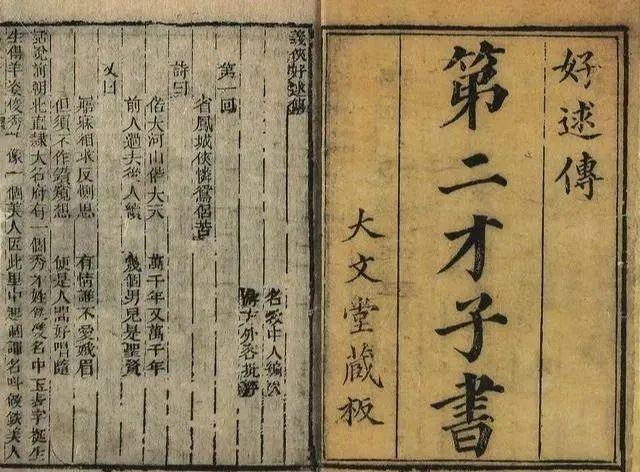 好逑傳
第二才子書
大文堂藏板
義俠好逑傳
名教中人編次
游方外客批評
第一回
省鳳城俠憐鴛侶苦
詩曰
偌大河山偌大天 萬千年又萬千年
前人過去後人續 幾個男兒是聖賢
又曰
寤寐相求反側思 有情誰不愛娥眉
但須不作鑽窺想 便是人間好唱隨
話說前朝北直隸大名府有一個秀才姓鐵雙名中玉表字挺生
生得丰姿俊秀 像一個美人因此里中起個諢名叫做鐵美人